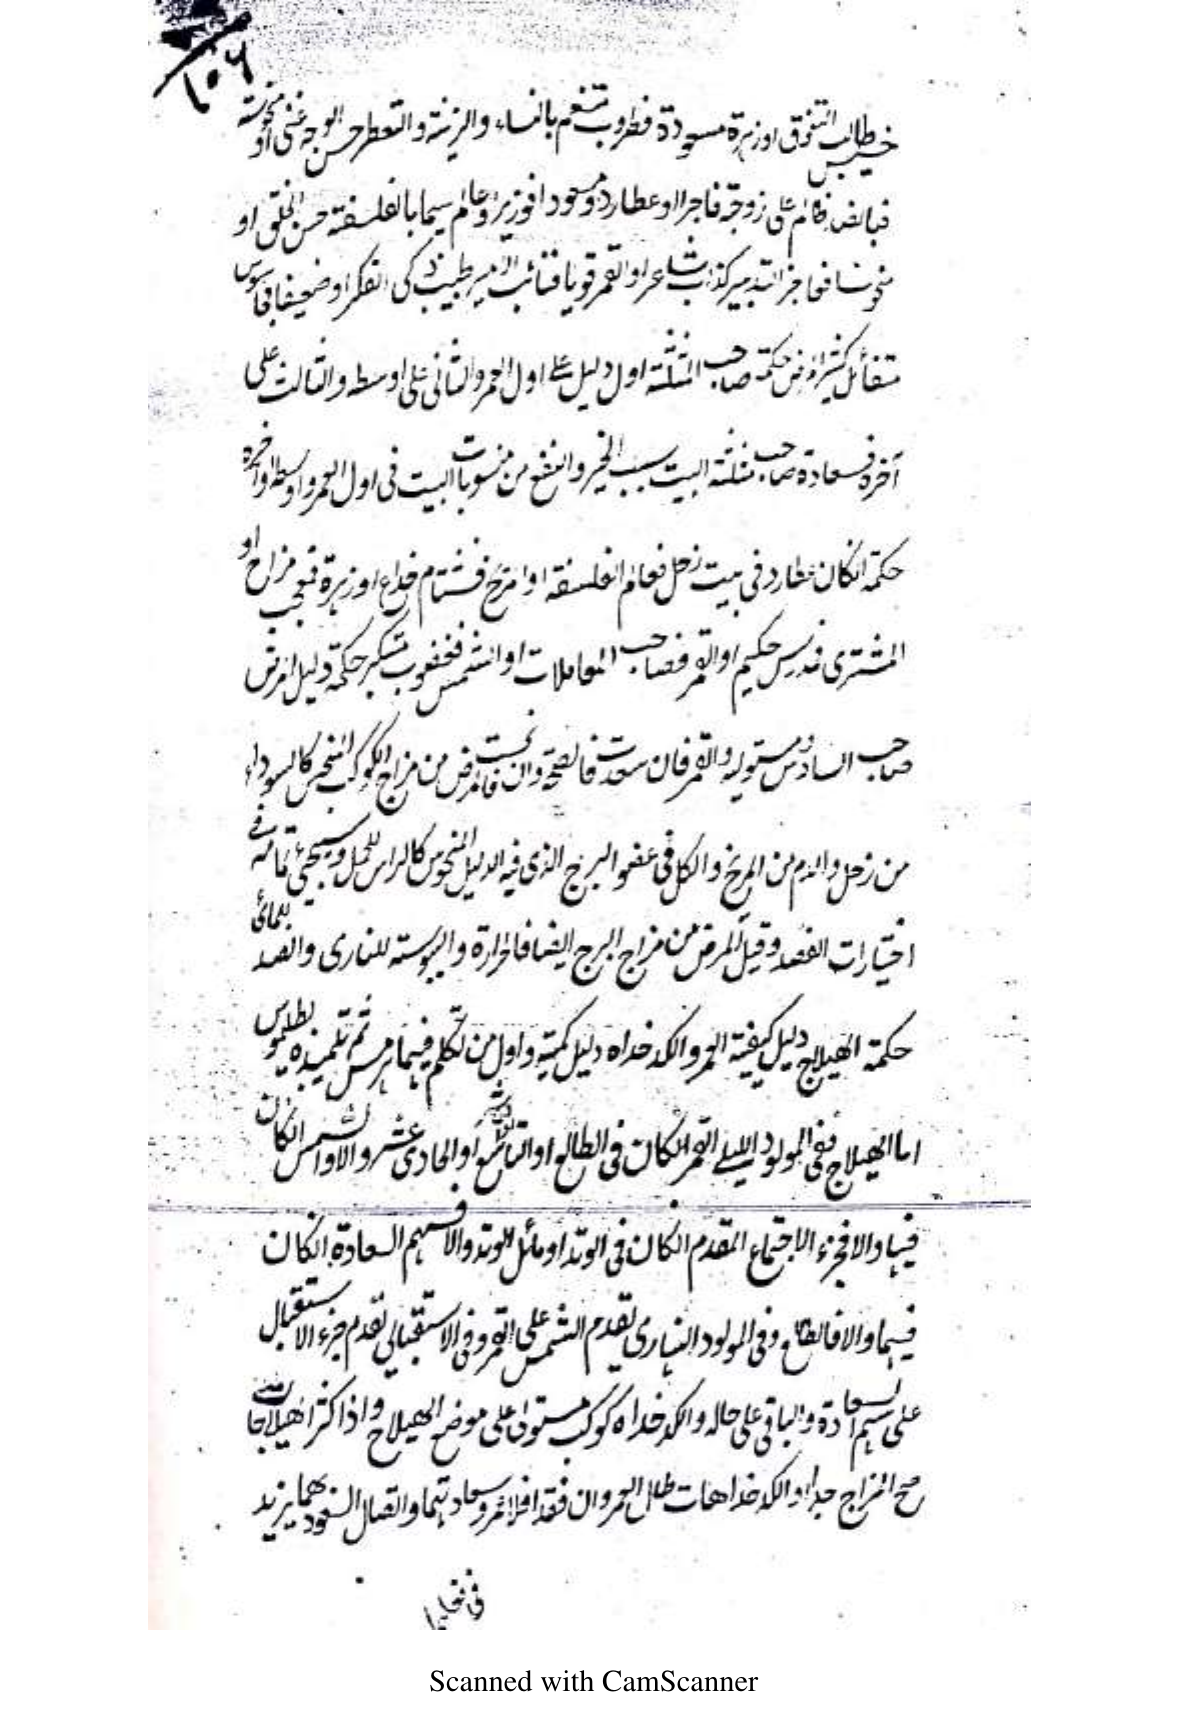 ١٠٦
خسيس طالب التفوق او زهرة مسعودة فطروب متنعم بالنساء والزينة والتعطر حسن الوجه غنى او منحوسة
فبالضد قائم على زوجة فاجرا او عطارد مسعودا فوزير وعالم سيما بالفلسفة حسن الخلق او
منحوسا فعاجز التدبير كذاب شاعر او القمر قويا فنائب الامير طبيب ذكى الفكر او ضعيفا فجاسوس
متفائل كثير المرض حكمة صاحب المثلثة اول دليل على اول العمر والثانى على اوسطه والثالث على
آخره فسعادة صاحب مثلثة البيت سبب الخير والنفع من منسوبات البيت فى اول العمر واوسطه وآخره
حكمة انكان عطارد فى بيت زحل فعالم الفلسفة او المريخ فشتام خداع او زهرة فمعجب مزاح او
المشترى فمدرس حكيم او القمر فصاحب المعاملات او الشمس فغضوب متكبر حكمة دليل المرض
صاحب السادس ومستوليه والقمر فان سعدت فالصحة وان نحست فالمرض من مزاج الكوكب النحس كالسوداء
من زحل والدم من المريخ والكل فى عضو البرج الذى فيه الدليل المنحوس كالراس للحمل وسيجئ تمامه فى
اختيارات الفصد وقيل المرض من مزاج البرج ايضا فالحرارة واليبوسة للنارى والضد للمائى
حكمة الهيلاج دليل كيفية العمر والكدخداه دليل كميته واول من تكلم فيهما هرمس ثم تلميذه بطليموس
اما الهيلاج ففى المولود الليلى القمر انكان فى الطالع او التاسع او الحادى عشر والا والشمس انكان
فيها والا فجزء الاجتماع المقدم انكان فى الوتد او مائل الوتد والا فسهم السعادة انكان
فيهما والا فالطالع وفى المولود النهارى تقدم الشمس على القمر وفى الاستقبالى تقدم جزء الاستقبال
على سهم السعادة والباقى على حاله والكدخداه كوكب مستولى على موضع الهيلاج واذا كثر الهيلاجات
صح المزاج جدا والكدخداهات طال العمر وان فقد افلا عمر وسعادتهما واتصال السعود بهما يزيد